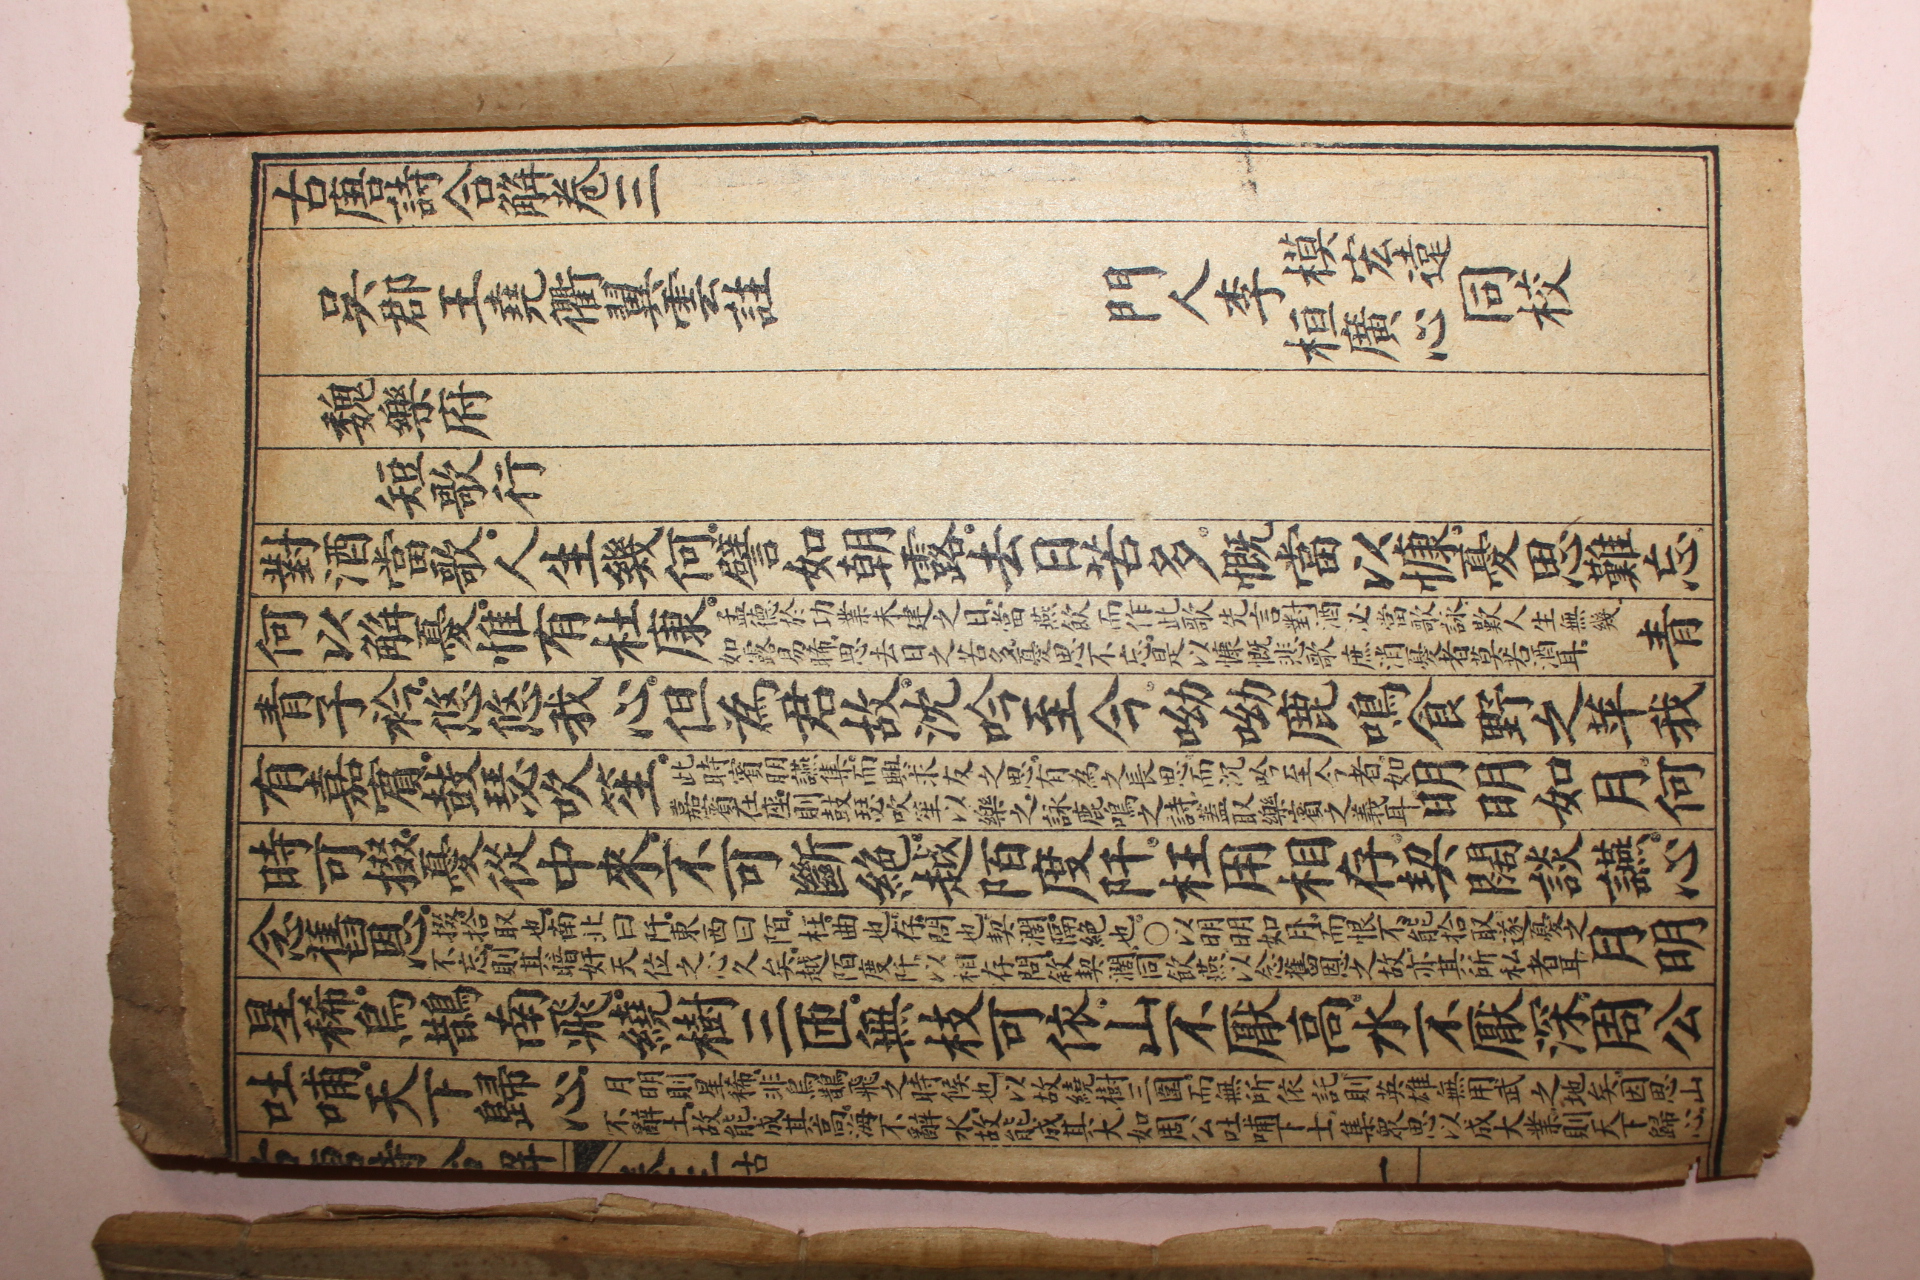 古唐詩合解卷三
吳郡王堯衢翼雲註　門人李模宏遠桓廣心同校
魏樂府
短歌行
對酒當歌人生幾何譬如朝露去日苦多慨當以慷憂思難忘
何以解憂惟有杜康孟德於功業未建之日當燕飲而作此歌先言對酒必當歌詠歎人生無幾如露易晞思去日之苦多憂思不忘是以慷慨悲歌庶消憂者莫若酒耳青
青子衿悠悠我心但為君故沈吟至今呦呦鹿鳴食野之苹我
有嘉賓鼓瑟吹笙此時賓朋讌集而興求友之思有為之長思而沉吟至今者如嘉賓在座則鼓瑟吹笙以樂之詠鹿鳴之詩蓋取樂賓之義耳明明如月何
時可掇憂從中來不可斷絕越陌度阡枉用相存契闊談讌心
念舊恩掇拾取也南北曰阡東西曰陌枉曲也存問也契濶隔絕也○以明明如月而恨不能拾取遂憂之不忘則其暗奸天位之心久矣越陌度阡以相存問敘契濶同飲燕以念舊恩之故亦其所私者耳月明
星稀烏鵲南飛繞樹三匝無枝可依山不厭高水不厭深周公
吐哺天下歸心月明則星稀非烏鵲飛之時候也以故繞樹三圍而無所依託則英雄無用武之地矣因思山不辭土故能成其高海不辭水故能成其大如周公吐哺下士集衆思以成大業則天下歸心
古唐詩合解　卷三古　一